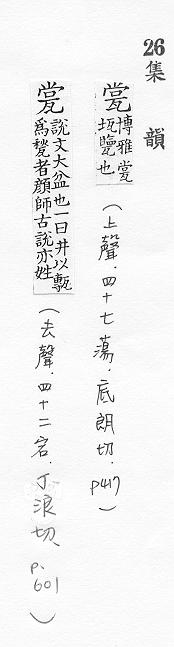 26
集韻
瓽
博雅瓽
也
(上聲．四十七蕩．底朗切．p417)
瓽
說文大盆也一曰井以甎
爲甃者顏師古說亦姓
(去聲．四十二宕．丁浪切、p.601)